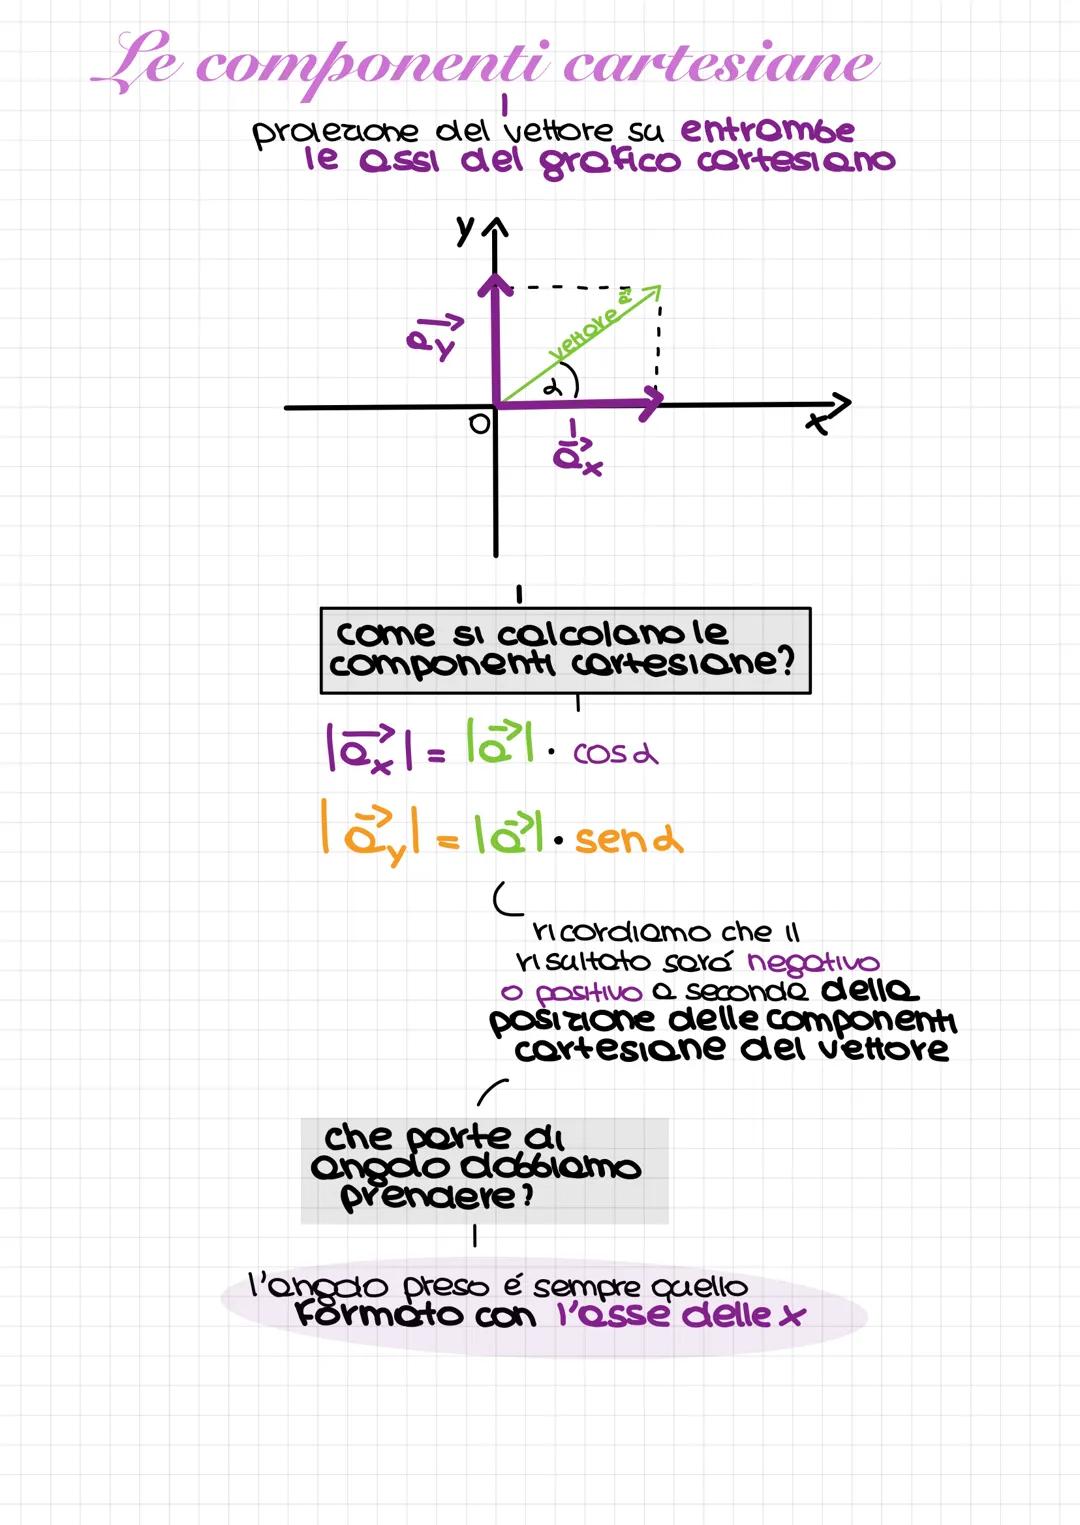 Le componenti cartesiane
proiezione del vettore su entrambe
le assi del grafico cartesiano
y
vettore a⃗
α
O
x
a⃗x
come si calcolano le
componenti cartesiane?
|a⃗x| = |a⃗| · cosα
|a⃗y| = |a⃗| · senα
ricordiamo che il
risultato sará negativo
o positivo a seconda della
posizione delle componenti
cartesiane del vettore
che parte di
angolo dobbiamo
prendere?
l'angolo preso é sempre quello
formato con l'asse delle x